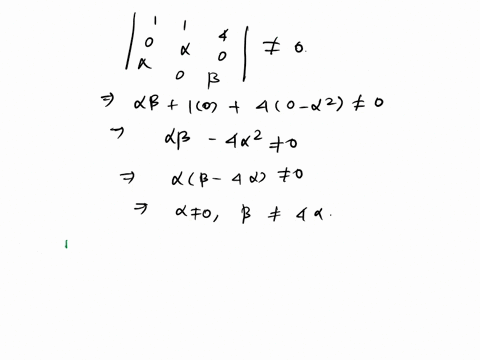 | 1 1 4 |
| 0 α 0 | ≠ 0.
| α 0 β |
⇒ αβ + 1(0) + 4(0-α²) ≠ 0
⇒ αβ - 4α² ≠ 0
⇒ α(β - 4α) ≠ 0
⇒ α ≠ 0, β ≠ 4α.